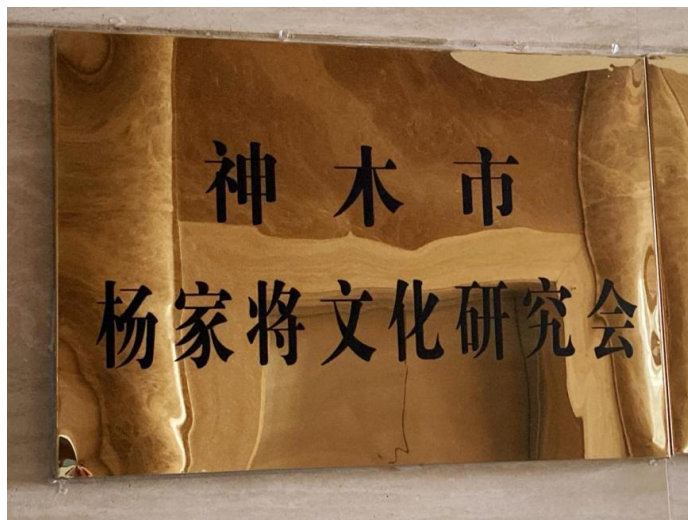 神木市
杨家将文化研究会